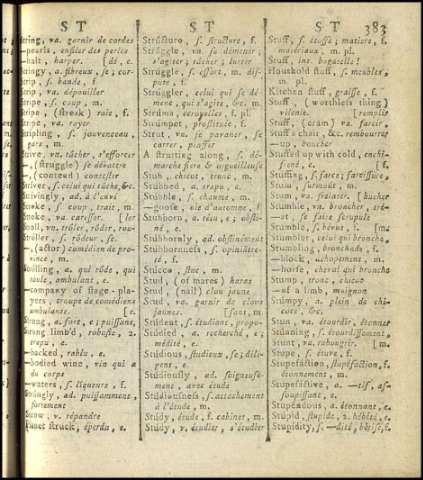 ST ST ST 383
tring, va. garnir de cordes
—pearls, enfiler des perles
—halt, harper. [dé, e.
tringy, a. fibreux, se; cor-
f. bande, f.
trip, va. dépouiller
tripe, f. coup, m.
(streak) raie, f.
tripe, va. rayer
tripling, f. jouvenceau,
gars, m.
trive, va. tâcher, s'efforcer
—, (struggle) se débattre
—, (contend) contester
triver, f. celui qui tâche, &c.
trivingly, ad. à l'envi
troke, f. coup, trait, m.
troke, va. caresser. [ler
troll, vn. trôler, rôder, rou-
troller, f. rôdeur, se.
—, (actor) comédien de pro-
vince, m.
trolling, a. qui rôde, qui
roule, ambulant, e.
—company of stage-pla-
yers, troupe de comédiens
ambulante. [e.
trong, a. fort, e; puissant,
trong limb'd, robuste, 2.
trapu, e.
—backed, rablu, e.
—bodied wine, vin qui a
du corps
—waters, f. liqueurs, f.
trongly, ad. puissamment,
fortement
trow, v. répandre
Planet struck, éperdu, e.
Strúcture, f. structure, f.
Strúggle, vn. se démener;
s'agiter; tâcher; lutter
Strúggle, f. effort, m. dis-
pute, f.
Strúggler, celui qui se dé-
mene, qui s'agite, &c. m.
Strúma, écrouelles, f. pl.
Strúmpet, prostituée, f.
Strut, vn. se panader, se
carrer, piaffer
A strutting along, f. dé-
marche fiere & orgueilleuse
Stub, chicot, tronc, m.
Stúbbed, a. trapu, e.
Stúbble, f. chaume, m.
—goose, oie d'automne, f.
Stúbborn, a. têtu, e; obsti-
né, e.
Stúbbornly, ad. obstinément
Stúbbornness, f. opiniâtre-
té, f.
Stúcco, stuc, m.
Stud, (of mares) haras
Stud, (nail) clou jaune
Stud, va. garnir de clous
jaunes. [fant, m.
Stúdent, f. étudiant, propo-
Stúdied, a. recherché, e;
médité, e.
Stúdious, studieux, se; dili-
gent, e.
Stúdiously, ad. soigneuse-
ment, avec étude
Stúdiousness, f. attachement
à l'étude, m.
Stúdy, étude, f. cabinet, m.
Stúdy, v. étudier, s'étudier
Stuff, f. étoffe; matiere, f.
matériaux, m. pl.
Stuff, int. bagatelle!
Houshold stuff, f. meubles,
m. pl.
Kitchen stuff, graisse, f.
Stuff, (worthless thing)
vilenie. [remplir
Stuff, (cram) va. farcir,
Stuff a chair, &c. rembourrer
—up, boucher
Stuffed up with cold, enchi-
frené, e.
Stuffing, f. farce; farcissure,
Stum, surmoûl, m.
Stum, va. frélater. [bûcher
Stumble, vn. broncher, tré-
—at, se faire scrupule
Stumble, f. bévue, f. [m.
Stumbler, celui qui bronche,
Stumbling, bronchade, f.
—block, achopement, m.
—horse, cheval qui bronche
Stump, tronc, chicot
—of a limb, moignon
Stumpy, a. plein de chi-
cots, &c.
Stun, va. étourdir, étonner
Stunning, f. étourdissement,
Stunt, va. rabougrir. [m.
Stupe, f. étuve, f.
Stupefáction, stupéfaction, f.
étonnement, m.
Stupefáctive, a. —tif, as-
soupissant, e.
Stupéndous, a. étonnant, e.
Stúpid, stupide, 2. hébété, e.
Stupídity, f. —dité, bêtise, f.